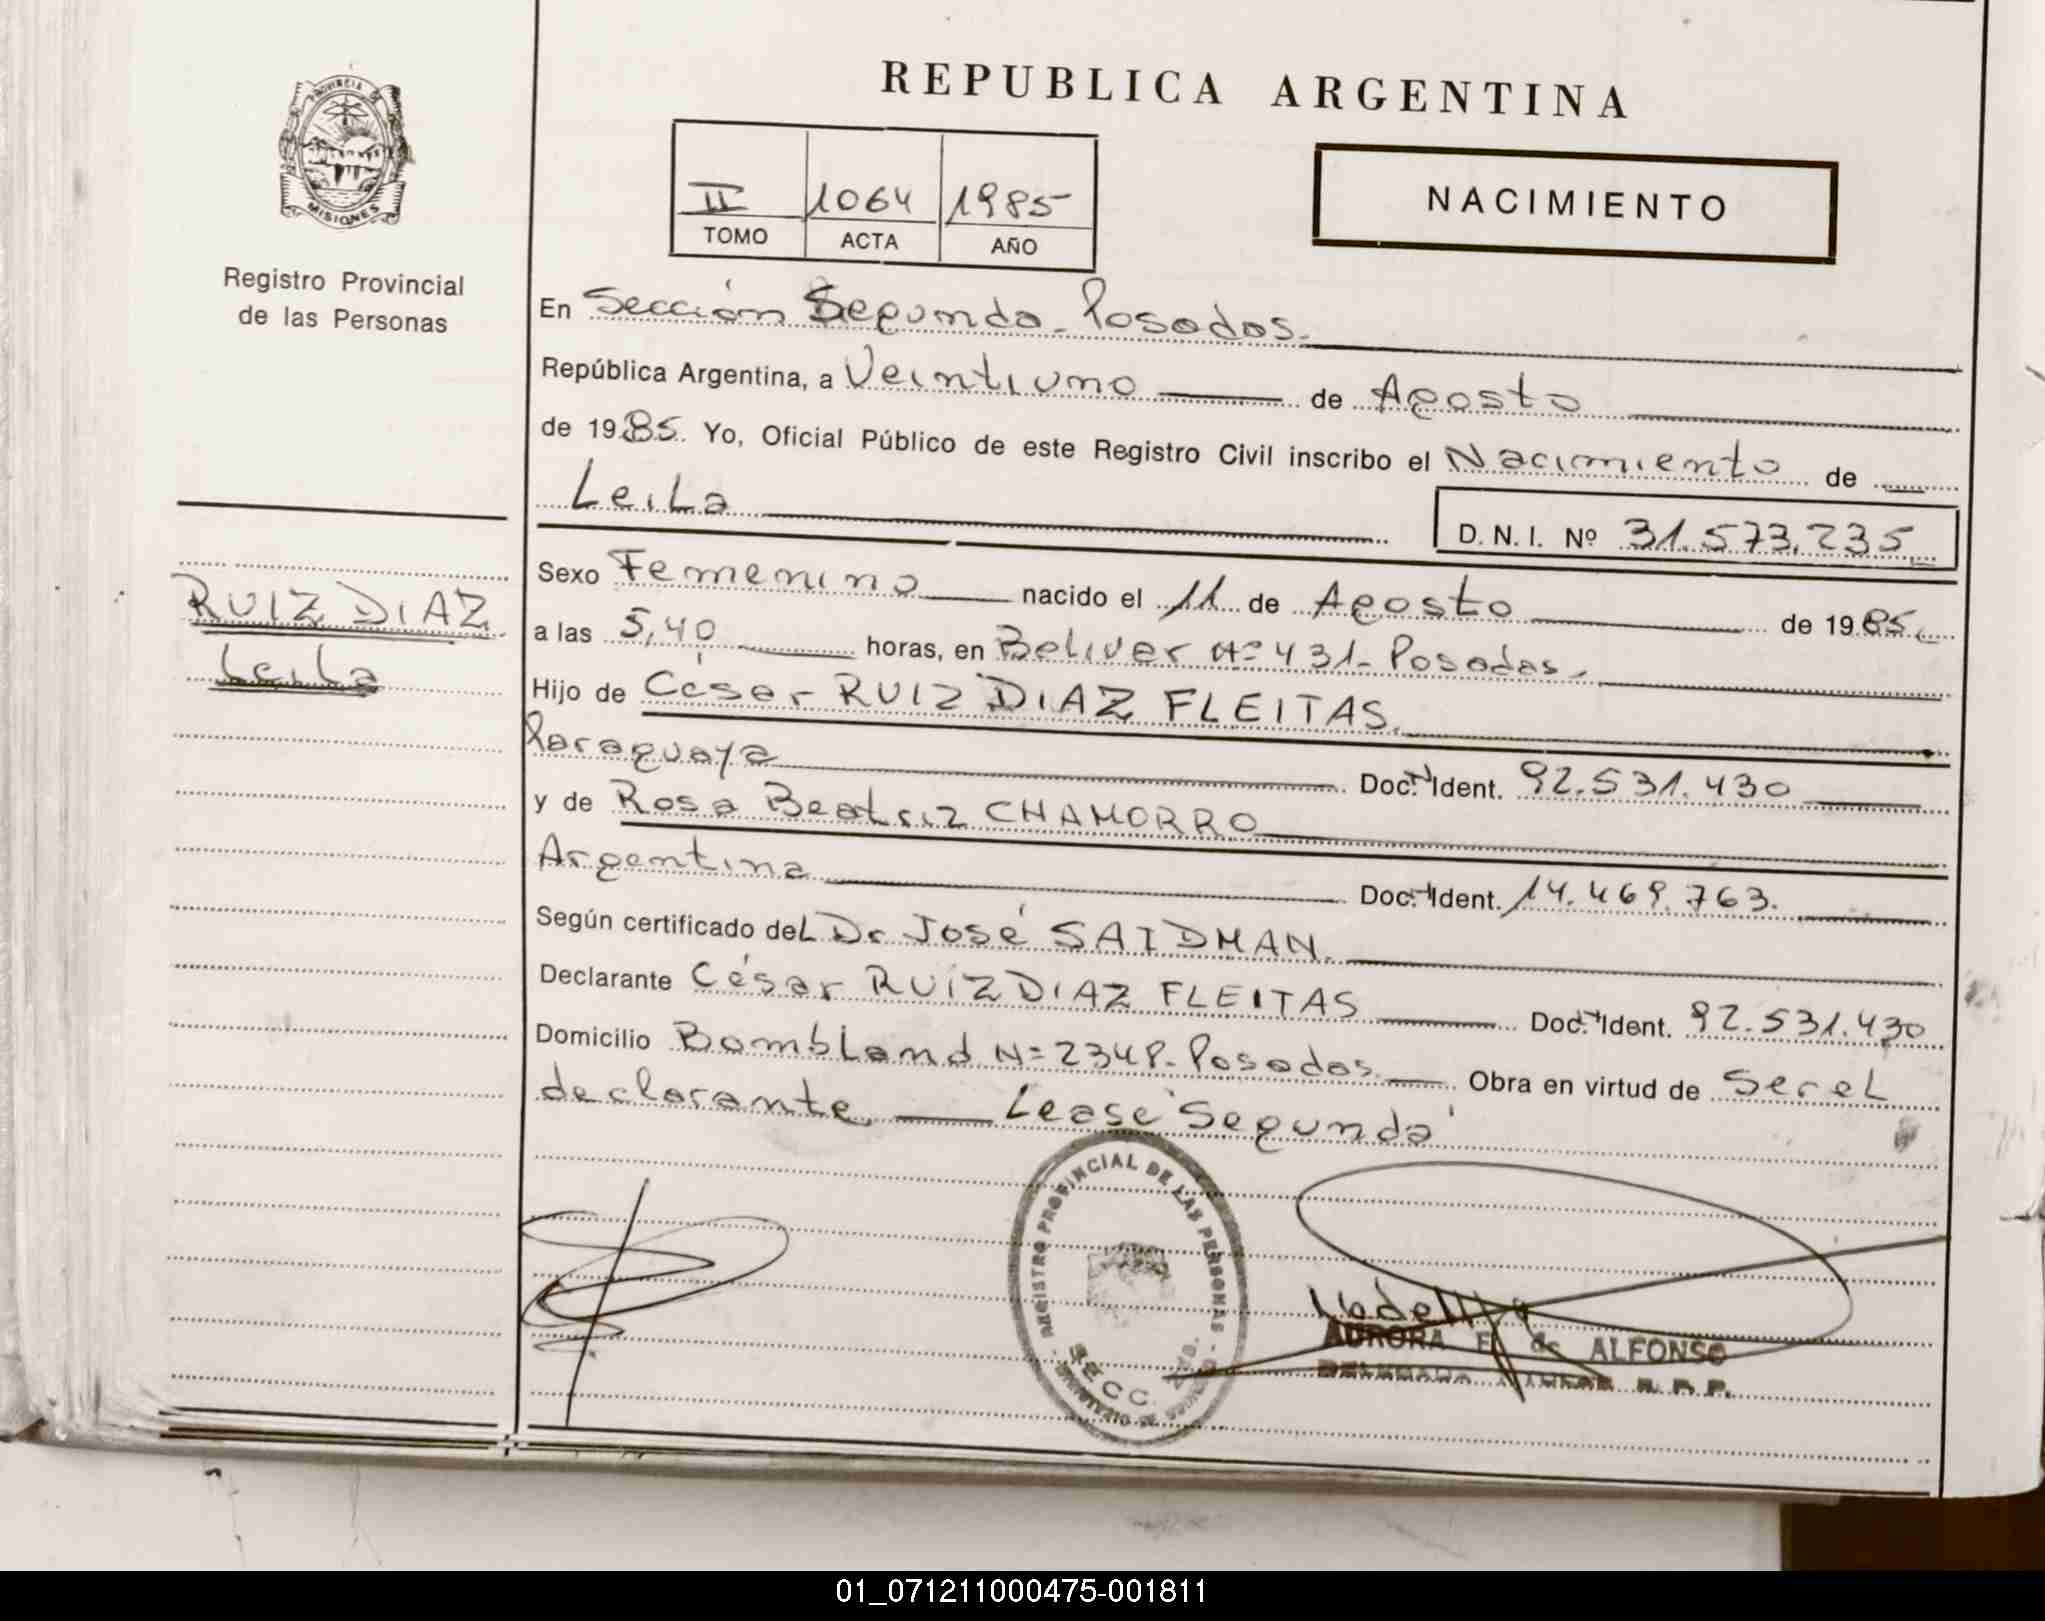 REPUBLICA ARGENTINA
PROVINCIA DE
MISIONES
Registro Provincial
de las Personas
II 1064 1985
TOMO ACTA AÑO
NACIMIENTO
En Sección Segunda. Posadas.
República Argentina, a Veintiuno de Agosto
de 1985. Yo, Oficial Público de este Registro Civil inscribo el Nacimiento de
Leila
D. N. I. Nº 31.573.235
RUIZ DIAZ
Leila
Sexo Femenino nacido el 11 de Agosto de 1985.
a las 5,40 horas, en Beliver Nº 431- Posadas.
Hijo de César RUIZ DIAZ FLEITAS.
Paraguaya Doc. N Ident. 92.531.430
y de Rosa Beatriz CHAMORRO
Argentina Doc. Ident. 14.469.763.
Según certificado del Dr José SAIDMAN.
Declarante César RUIZ DIAZ FLEITAS Doc. Ident. 92.531.430
Domicilio Bombland Nº 2348- Posadas Obra en virtud de Ser el
declarante. Lease 'Segunda'
REGISTRO PROVINCIAL DE LAS PERSONAS
SECC. 2da.
AURORA de ALFONSO
DELEGADA TITULAR R. P. P.
01_071211000475-001811